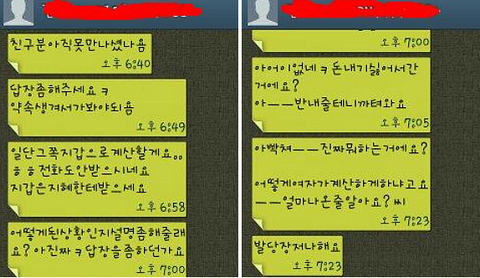 친구분아직못만나셨나욤
오후 6:40
답장좀해주세요ㅋ
약속생겨서가봐야되욤
오후 6:49
일단그쪽지갑으로계산할게요,,
ㅎㅎ전화도안받으시네요
지갑은지혜한테받으세요
오후 6:58
어떻게된상황인지설명좀해줄래
요? 아진짜ㅋ답장을좀하던가요
오후 7:00
오후 7:00
아어이없네ㅋ돈내기싫어서간
거에요?
아ㅡㅡ반내줄테니까텨와요
오후 7:05
아빡쳐ㅡㅡ진짜뭐하는거에요?
어떻게여자가계산하게하냐고요
ㅡㅡ얼마나온줄알아요? 씨
오후 7:23
발당장저나해요
오후 7:23